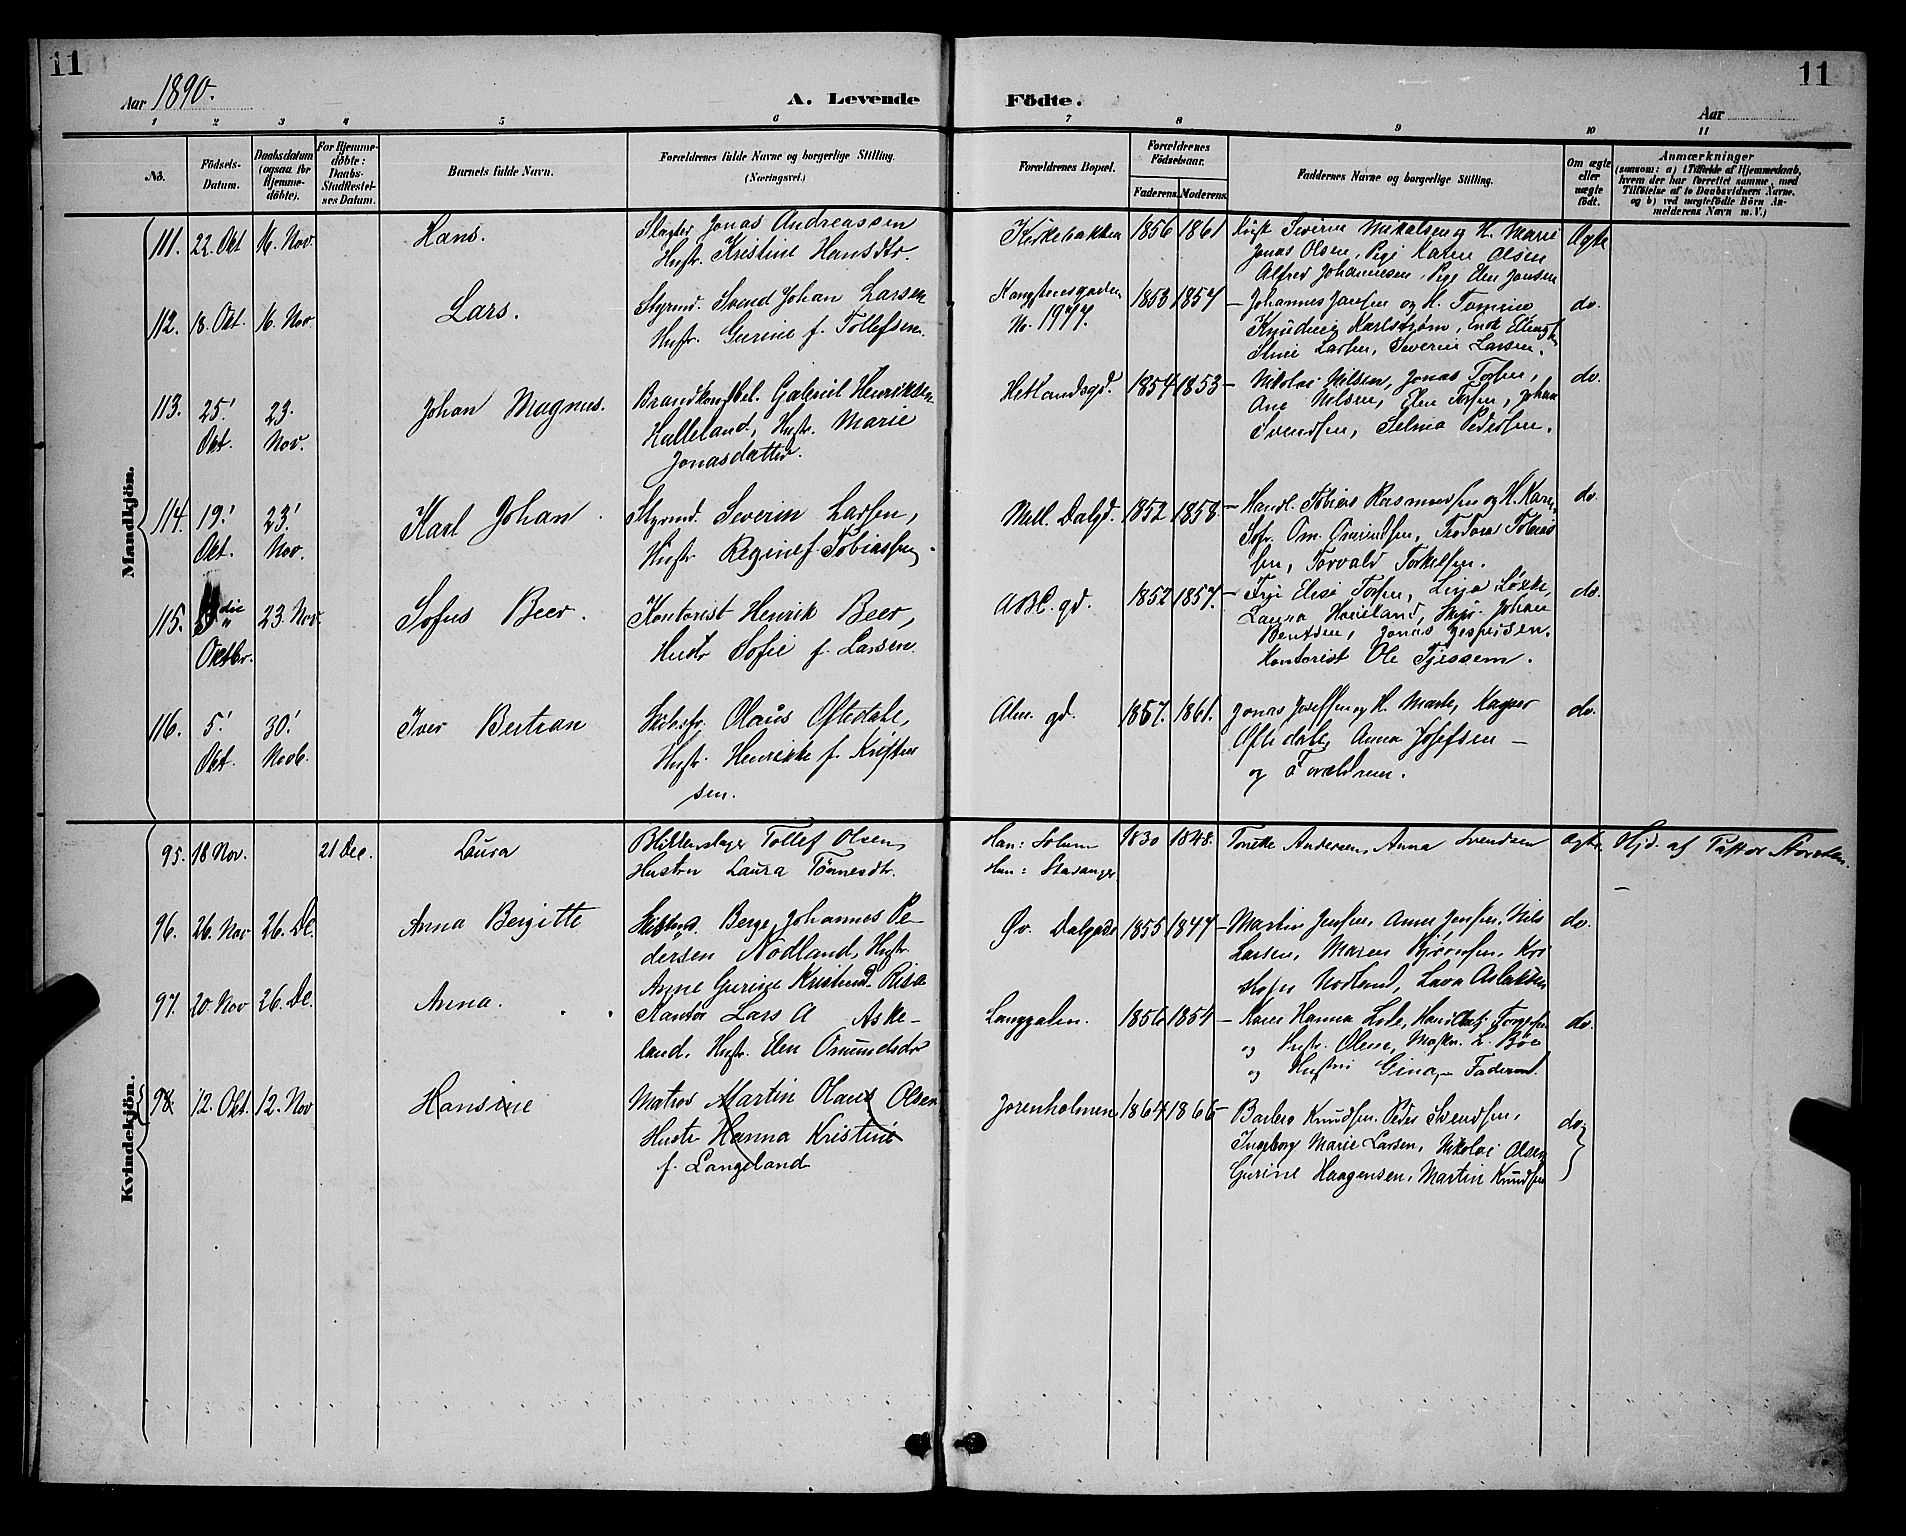 11
11
Aar 1890.
A. Levende Födte.
Aar
1 2 3 4 5 6 7 8 9 10 11
No.
Födsels-
Datum.
Daabsdatum
(ogsaa for
Hjemme-
döbte).
For Hjemme-
döbte:
Daabs-
Stadfæstel-
ses Datum.
Barnets fulde Navn.
Forældrenes fulde Navne og borgerlige Stilling.
(Næringsvei.)
Forældrenes Bopæl.
Forældrenes
Födselsaar.
Faderens.
Moderens.
Faddernes Navne og borgerlige Stilling.
Om ægte
eller
uægte
födt.
Anmærkninger
(saasom: a) i Tilfælde af Hjemmedaab,
hvem der har forrettet samme, med
Tilföielse af to Daabsvidners Navne.
og b) ved uægtefödte Börn An-
melderens Navn m. V.)
Mandkjön.
111. 22. Okt 16. Nov. Hans.
Slagter Jonas Andreassen
Hustr. Kristine Hansdtr.
Kirkebakken 1856 1861
Severine Mikalsen og H. Marie
Jonas Olsen, Pige Karen Olsen
Alfred Johannesen, Pige Elen Jansen
Ægte
112. 18. Okt. 16. Nov. Lars.
Styrmd. Svend Johan Larsen
Hustr. Gurine f. Tollefsen.
No. 1977. 1853 1857
Johannes Jansen og H. Tomine
Karlstrøm,
Stine Larsen, Severine Larsen.
do.
113. 25' Okt. 23. Nov. Johan Magnus.
Brandkonstbel. Gabriel Henriksen
Halleland, Hustr. Marie
Jonasdatter.
Hetlandsgd. 1854 1853
Nikolai Nilsen, Jonas Torsen,
Ane Nilsen, Elen Torsen, Johan
Svendsen, Selma Pedersen.
do.
114. 19' Okt. 23' Nov. Karl Johan.
Styrmd. Severin Larsen,
Hustr Regine f. Tobiassen.
Mell. Dalgd. 1852 1858
Handl. Tobias Rasmussen og H. Karen,
Sofr. Om. Omundsen, Teodora Tobias
sen, Torvald Torkelsen.
do.
115. Oktbr. 23. Nov. Sofus Beer.
Kontorist Henrik Beer,
Hustr Sofie f. Larsen
gd. 1852 1857.
Elise Torsen, Lina Løkke
Laura Haveland, Skpr. Johan
Bentsen, Jonas Jespersen.
Kontorist Ole Tjessem.
do.
116. 5' Okt. 30' Novb. Iver Bertran
Skibsfr. Olaus Oftedahl,
Hustr. Henrikke f. Kristen
sen.
Alm. gd. 1857. 1861.
Jonas Joseffsen og H. Marte, Kasper
Oftedahl, Anna Josefsen —
og Forældrene.
do.
Kvindekjön.
95. 18 Nov. 21 Dec. Laura
Blikkenslager Tollef Olsen,
Hustru Laura Tönnesdtr.
Han: Solum
Hun: Stavanger
1830 1848.
Tonette Andersen, Anna Svendsen
Ægte. Hjd. af Pastor
96. 26. Nov 26. De. Anna Bergitte
Berge Johannes Pe-
dersen Nodland, Hustr.
Anne Gurine Kristind. Risa
Øv. Dalgade 1855 1847
Martin Jensen, Anne Jensen, Nils
Larsen, Maren Bjørnsen, Kri
stofer Nodland, Lava Aslaksen
do.
97. 20 Nov 26. De. Anna.
Kantor Lars A Aske-
land, Hustr. Elen Omundsdtr
Langgaten. 1856 1854
Karen Hanna Lote,
og Hustr. Oline, L. Bøe
og Hustru Gina, — Faderen.
do.
98 12. Okt. 12. Nov Hansine
Matros Martin Olaus Olsen
Hustr Hanna Kristine
f. Langeland
Jorenholmen 1864 1866
Barbro Knudsen, Peder Svendsen,
Ingeborg Marie Larsen, Nikolai Olsen
Gurine Haagensen, Martin Knudsen
do.